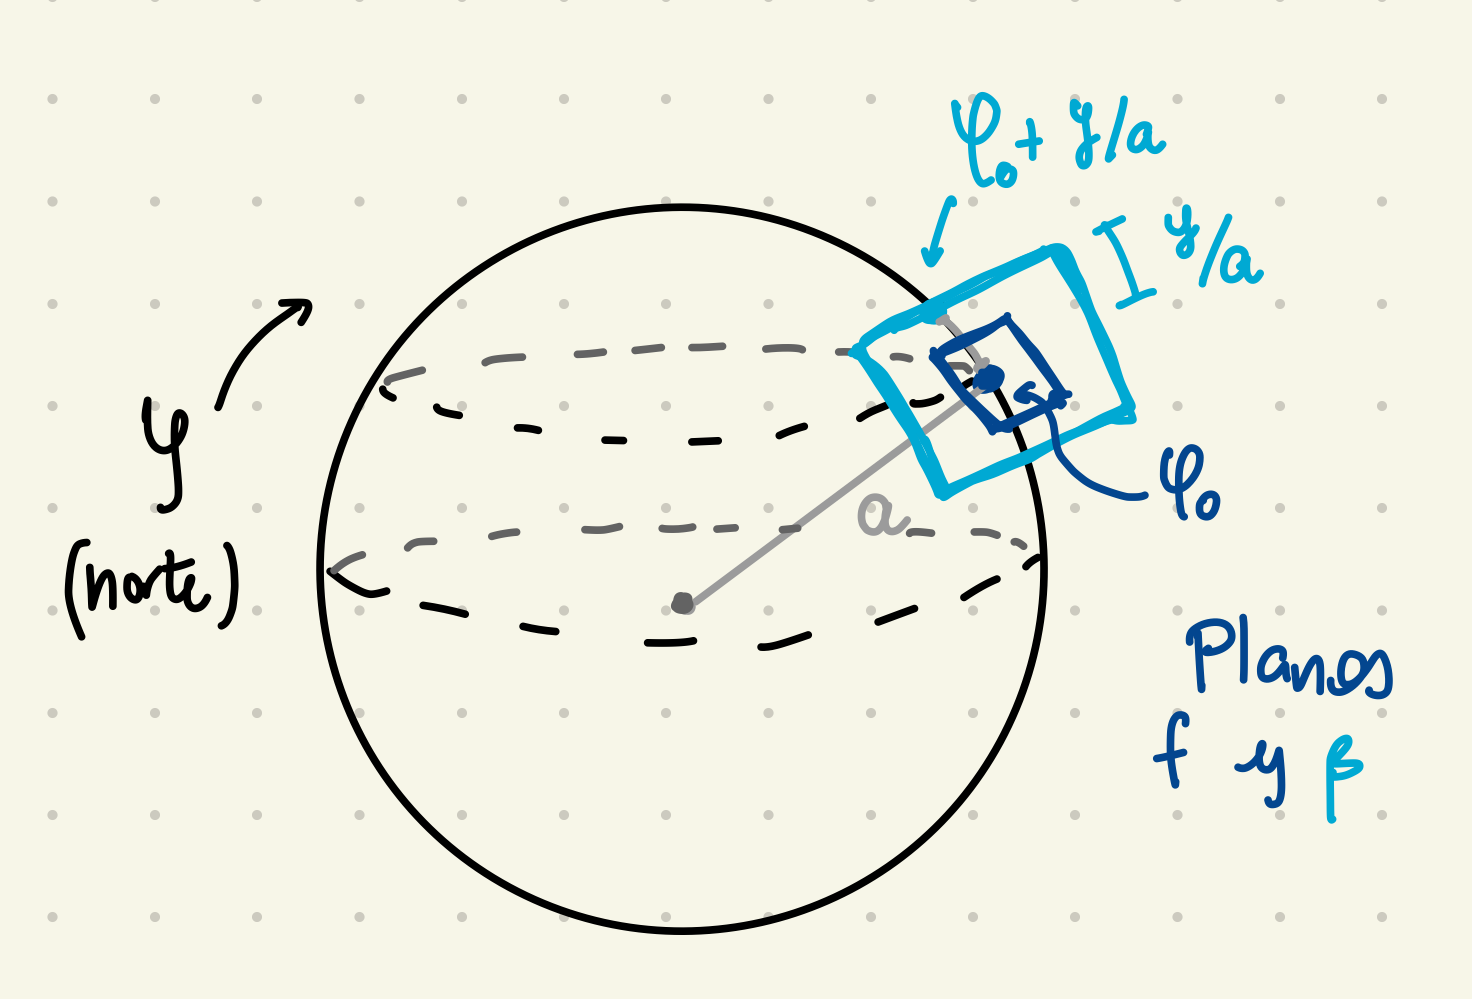 φ₀ + y/a
y/a
φ
(norte)
a
φ₀
Planos
f y β